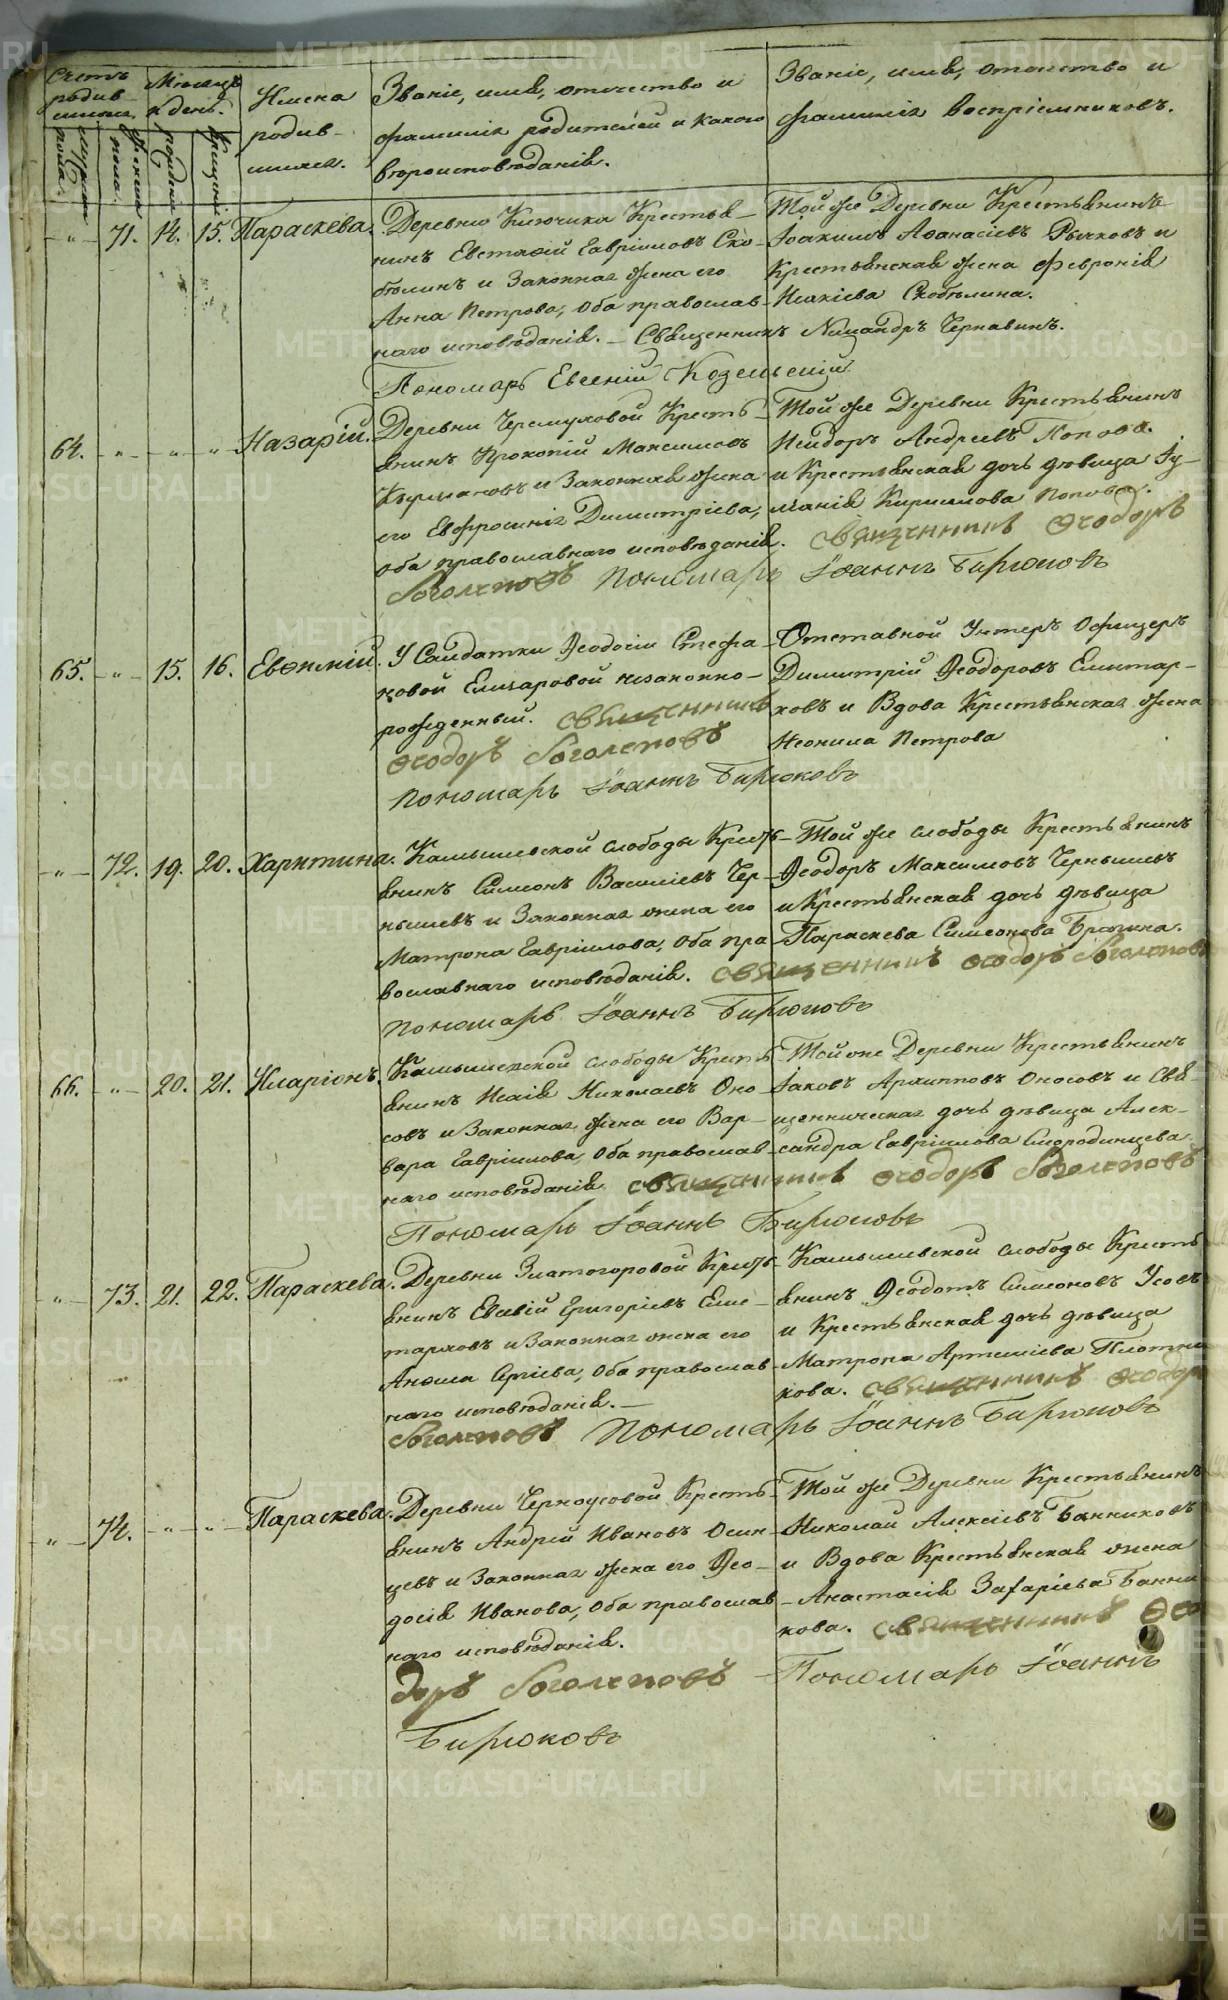 Счетъ родившихся.
Мѣсяцъ и день.
Имена родив-
шихся.
Званіе, имя, отчество и
фамилія родителей и какого
вѣроисповѣданія.
Званіе, имя, отчество и
фамилія воспріемниковъ.
мужска пола.
женска пола.
рожденія
крещенія
-"- 71. 14. 15. Параскева.
Деревни Ключика Крестья-
нинъ Евстафій Гавріиловъ Ско-
бѣлинъ и Законная жена его
Анна Петрова, оба православ-
наго исповѣданія. – Священникъ Никандръ Чернавинъ.
Пономарь Евгеній Козельскій
Той же Деревни Крестьянинъ
Іоакимъ Аѳанасіевъ Рычковъ и
Крестьянская жена Февронія
Исакіева Скобѣлина.
64. -"- -"- -"- Назарій.
Деревни Черемуховой Кресть-
янинъ Прокопій Максимовъ
и Законная жена
его Евфросинія Димитріева,
оба православнаго исповѣданія.
Той же Деревни Крестьянинъ
Исидоръ Андреевъ Поповъ.
и Крестьянская дочь дѣвица Іу-
ліанія Кириллова Попова.
Священникъ Ѳеодоръ
Боголеповъ Пономарь Іоаннъ Бирюковъ
65. -"- 15. 16. Евѳимій.
У Салдатки Ѳеодосіи Стефа-
новой Елизаровой незаконно-
рожденный. Священникъ
Ѳеодоръ Боголеповъ
Пономарь Іоаннъ Бирюковъ
Отставной Унтеръ Офицеръ
Димитрій Ѳеодоровъ Елистар-
ховъ и Вдова Крестьянская жена
Неонила Петрова
-"- 72. 19. 20. Харитина.
Камышевской слободы Кресть-
янинъ Симеонъ Василіевъ Чер-
нышевъ и Законная жена его
Матрона Гавріилова, оба пра-
вославнаго исповѣданія. Священникъ Ѳеодоръ Боголеповъ
Пономарь Іоаннъ Бирюковъ
Той же слободы Крестьянинъ
Ѳеодоръ Максимовъ Чернышевъ
и Крестьянская дочь дѣвица
Параскева Симеонова
66. -"- 20. 21. Иларіонъ.
Камышевской слободы Кресть-
янинъ Исаія Николаевъ Оно-
совъ и Законная жена его Вар-
вара Гавріилова, оба православ-
наго исповѣданія Священникъ Ѳеодоръ Боголеповъ
Пономарь Іоаннъ Бирюковъ
Той же Деревни Крестьянинъ
Іаковъ Архипповъ Оносовъ и Свя-
щенническая дочь дѣвица Алек-
сандра Гавріилова Смородинцева.
-"- 73. 21. 22. Параскева.
Деревни Златогоровой Кресть-
янинъ Евсивій Григоріевъ Елис-
тарховъ и Законная жена его
Сергіева, оба православ-
наго исповѣданія. –
Боголеповъ Пономарь Іоаннъ Бирюковъ
Камышевской слободы Кресть-
янинъ Ѳеодотъ Симеоновъ Усовъ
и Крестьянская дочь дѣвица
Матрона Артеміева Плотни-
кова. Священникъ Ѳеодоръ
-"- 74. -"- -"- Параскева.
Деревни Черноусовой Кресть-
янинъ Андрей Ивановъ Осин-
цевъ и Законная жена его Ѳео-
досія Иванова, оба православ-
наго исповѣданія.
Той же Деревни Крестьянинъ
Николай Алексіевъ Банниковъ
и Вдова Крестьянская жена
Анастасія Захаріева Банни-
кова. Священникъ Ѳео-
доръ Боголеповъ Пономарь Іоаннъ
Бирюковъ
METRIKI.GASO-URAL.RU